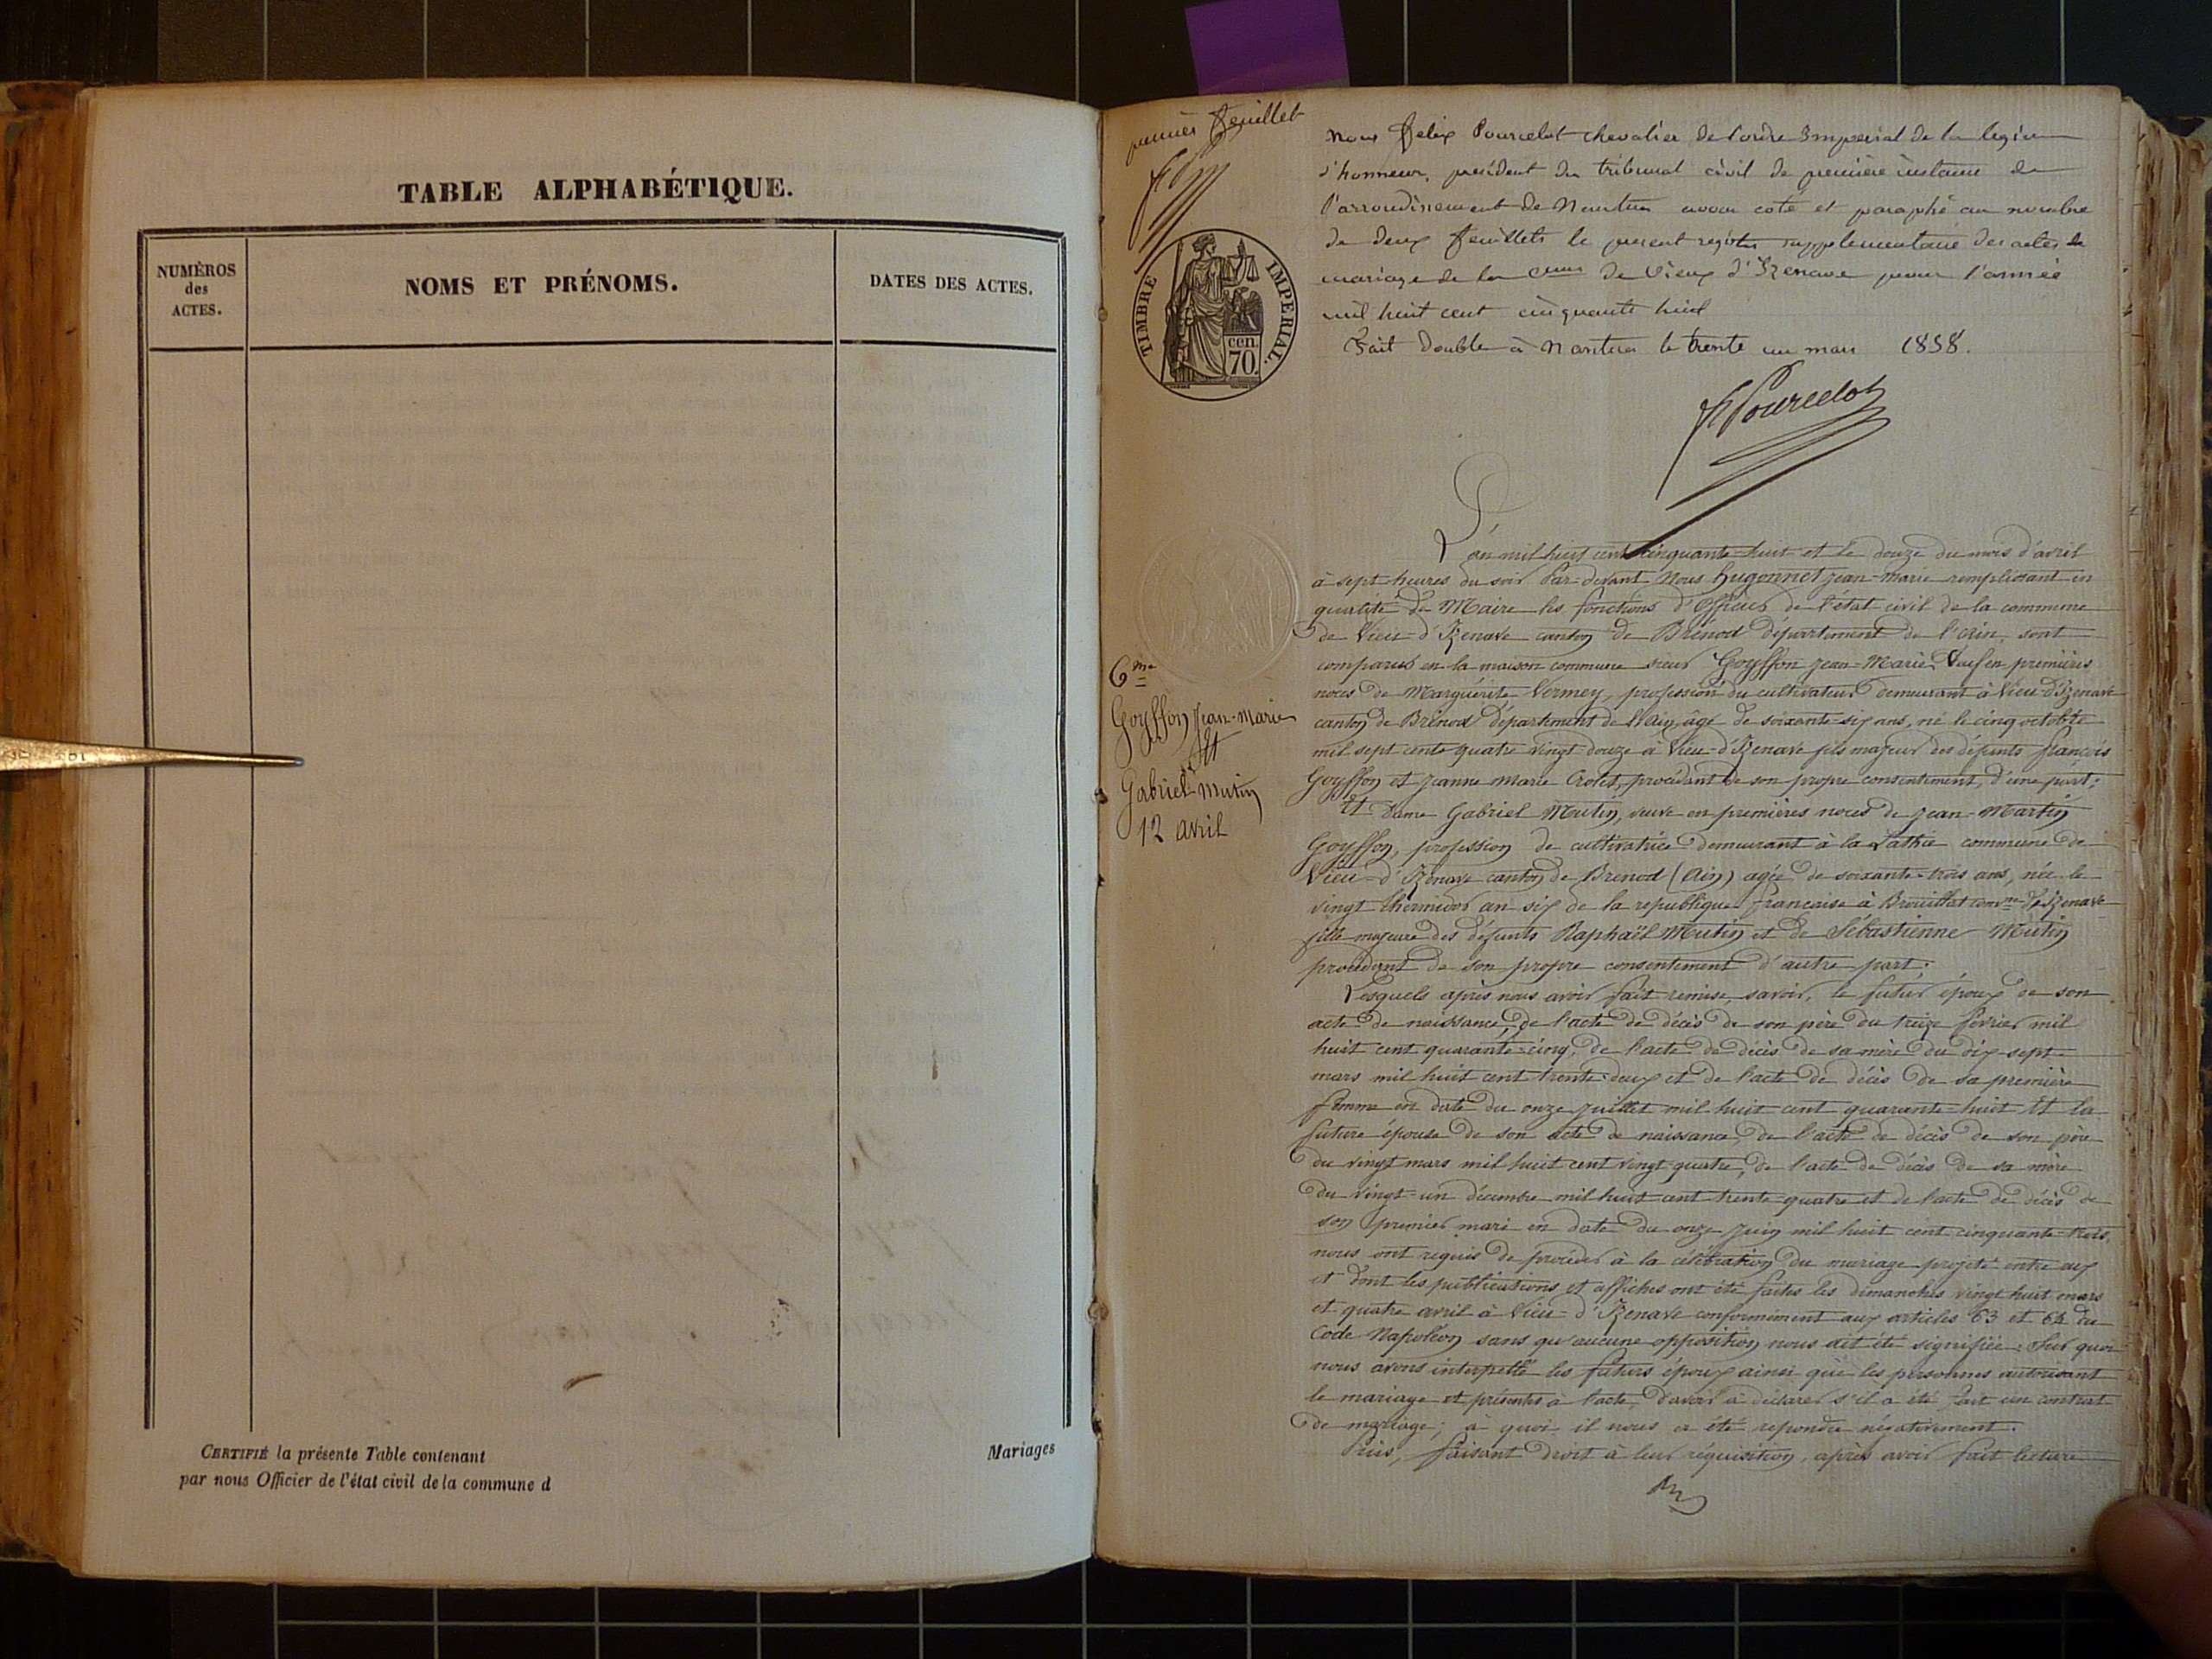 TABLE ALPHABÉTIQUE.
NUMÉROS
des
ACTES.
NOMS ET PRÉNOMS.
DATES DES ACTES.
CERTIFIÉ la présente Table contenant
par nous Officier de l'état civil de la commune d
Mariages
premier feuillet
TIMBRE IMPERIAL.
cen.
70.
nous Felix Pourcelot chevalier de l'ordre Imperial de la legion
d'honneur, president du tribunal civil de première instance de
l'arrondissement de Nantua avons coté et paraphé au nombre
de deux feuillets le present registre supplementaire des actes de
mariage de la cne de Vieux d'Izenave pour l'année
mil huit cent cinquante huit
Fait double à Nantua le trente un mars 1858.
F Pourcelot
L'an mil huit cent cinquante-huit et le douze du mois d'avril
à sept heures du soir Par-devant Nous Hugonnet Jean-Marie remplissant en
qualité de Maire les fonctions d'Officier de l'état civil de la commune
de Vieu-d'Izenave canton de Brénod département de l'ain, sont
comparus en la maison commune sieur Goyffon Jean-Marie, Veuf en premières
noces de Marguérite Vermey, profession de cultivateur demeurant à Vieu-d'Izenave
canton de Brénod département de l'Ain, âgé de soixante-six ans, né le cinq octobre
mil sept cent quatre vingt douze à Vieu-d'Izenave fils majeur des défunts françois
Goyffon et Jeanne Marie Crolet, procédant de son propre consentement, d'une part;
Et Dame Gabriel Mutin, veuve en premières noces de Jean-Martin
Goyffon, profession de cultivatrice demeurant à la Lathia commune de
Vieu-d'Izenave canton de Brenod (Ain) agée de soixante-trois ans, née le
vingt thermidor an six de la republique francaise à Brouillat comne d'Izenave
fille majeure des défunts Raphaël Mutin et de Sébastienne Mutin
procédant de son propre consentement d'autre part.
Lesquels après nous avoir fait remise, savoir, le futur époux de son
acte de naissance, de l'acte de décès de son père du treize février mil
huit cent quarante-cinq, de l'acte de décès de sa mère du dix-sept
mars mil huit cent trente-deux et de l'acte de décès de sa première
femme en date du onze juillet mil huit cent quarante-huit Et la
future épouse de son acte de naissance, de l'acte de décès de son père
du vingt mars mil huit cent vingt-quatre, de l'acte de décès de sa mère
du vingt-un décembre mil huit cent trente-quatre et de l'acte de décès de
son premier mari en date du onze juin mil huit cent cinquante-trois,
nous ont requis de procéder à la célébration du mariage projeté entre eux
et dont les publications et affiches ont été faites les dimanches vingt huit mars
et quatre avril à Vieu-d'Izenave conformément aux articles 63 et 64 du
Code Napoléon sans qu'aucune opposition nous ait été signifiée. Sur quoi
nous avons interpellé les futurs époux ainsi que les personnes autorisant
le mariage et présentes à l'acte, d'avoir à déclarer s'il a été fait un contrat
de mariage; à quoi il nous a été repondu négativement.
Puis, faisant droit à leur réquisition, après avoir fait lecture
6me
Goyffon Jean-Marie
Et
Gabriel Mutin
12 avril